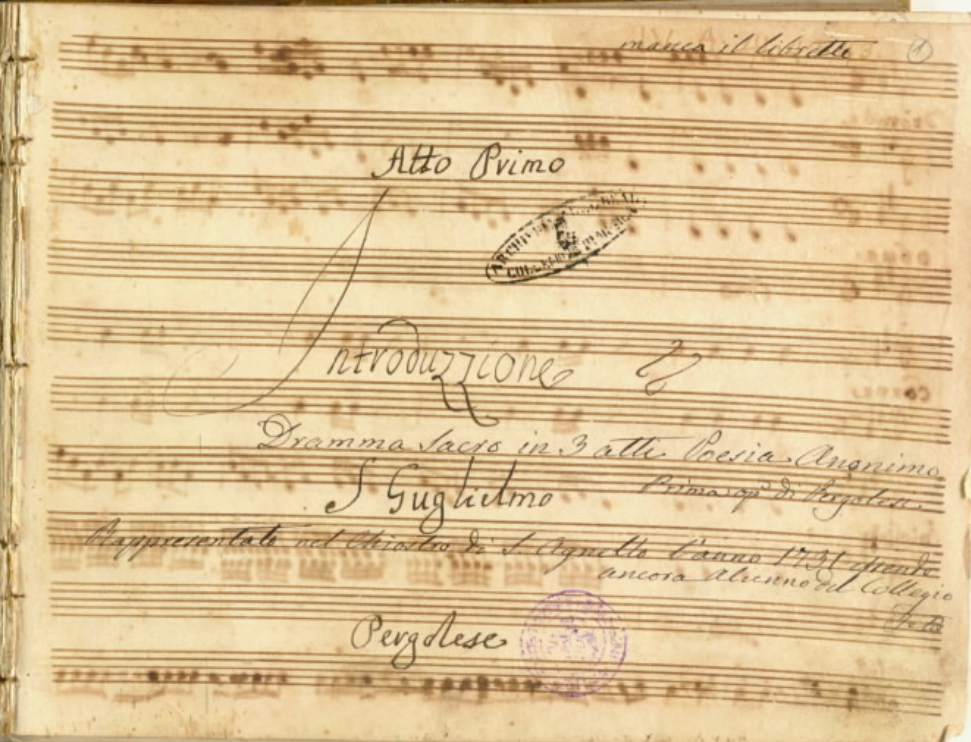 manca il libretto 1
Atto Primo
ARCHIVIO DEL REAL
COLLEGIO DI MUSICA
Introduzzione
Dramma Sacro in 3 atti Poesia Anonimo
S Guglielmo
Prima opª di Pergolesi.
Rappresentato nel Chiostro di S. Agnello l'anno 1731 essendo
ancora alunno del Collegio
Pergolese